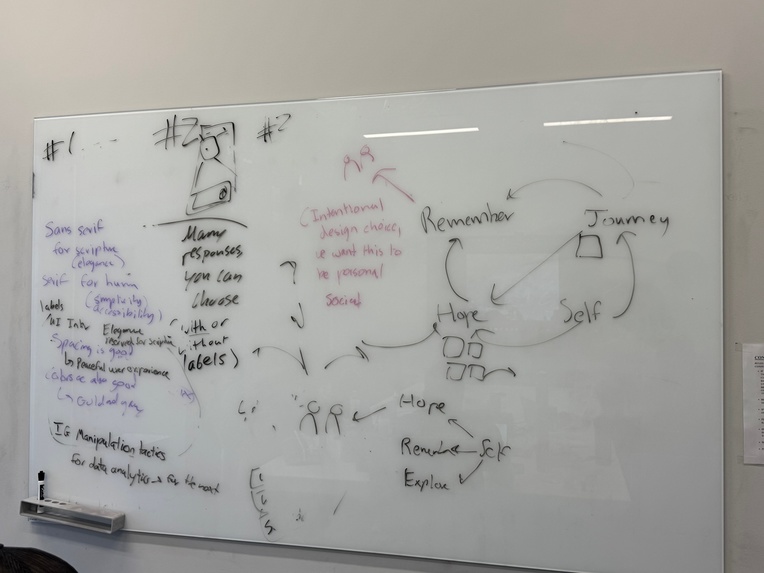 #1 ...
#2
#2
Sans serif
for scripture
(elegance)
serif for human
(simplicity
accessibility)
labels
UI Inter Elegance
reserved for scripture
Spacing is good
↳ Powerful user experience
also good
↳
IG Manipulation tactics
for data analytics →
Many
responses,
you can
choose
with or
without
labels)
(Intentional
design choice,
we want this to
be personal
Social
Remember
Journey
Hope
Self
Hope
Self
Explore